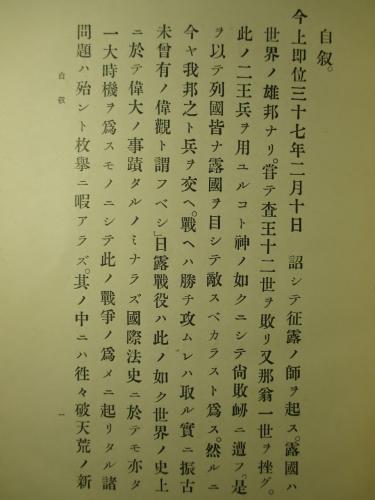 自叙。
今上即位三十七年二月十日 詔シテ征露ノ師ヲ起ス。露國ハ
世界ノ雄邦ナリ。甞テ査王十二世ヲ敗リ又那翁一世ヲ挫グ。
此ノ二王兵ヲ用ユルコト神ノ如クニシテ尙敗衂ニ遭フ。是
ヲ以テ列國皆ナ露國ヲ目シテ敵スベカラスト爲ス。然ルニ
今ヤ我邦之ト兵ヲ交ヘ。戰ヘハ勝チ攻ムレハ取ル實ニ振古
未曾有ノ偉觀ト謂フベシ」日露戰役ハ此ノ如ク世界ノ史上
ニ於テ偉大ノ事蹟タルノミナラズ國際法史ニ於テモ亦タ
一大時機ヲ爲スモノニシテ此ノ戰爭ノ爲メニ起リタル諸
問題ハ殆ント枚擧ニ暇アラズ。其ノ中ニハ徃々破天荒ノ新
自叙
一